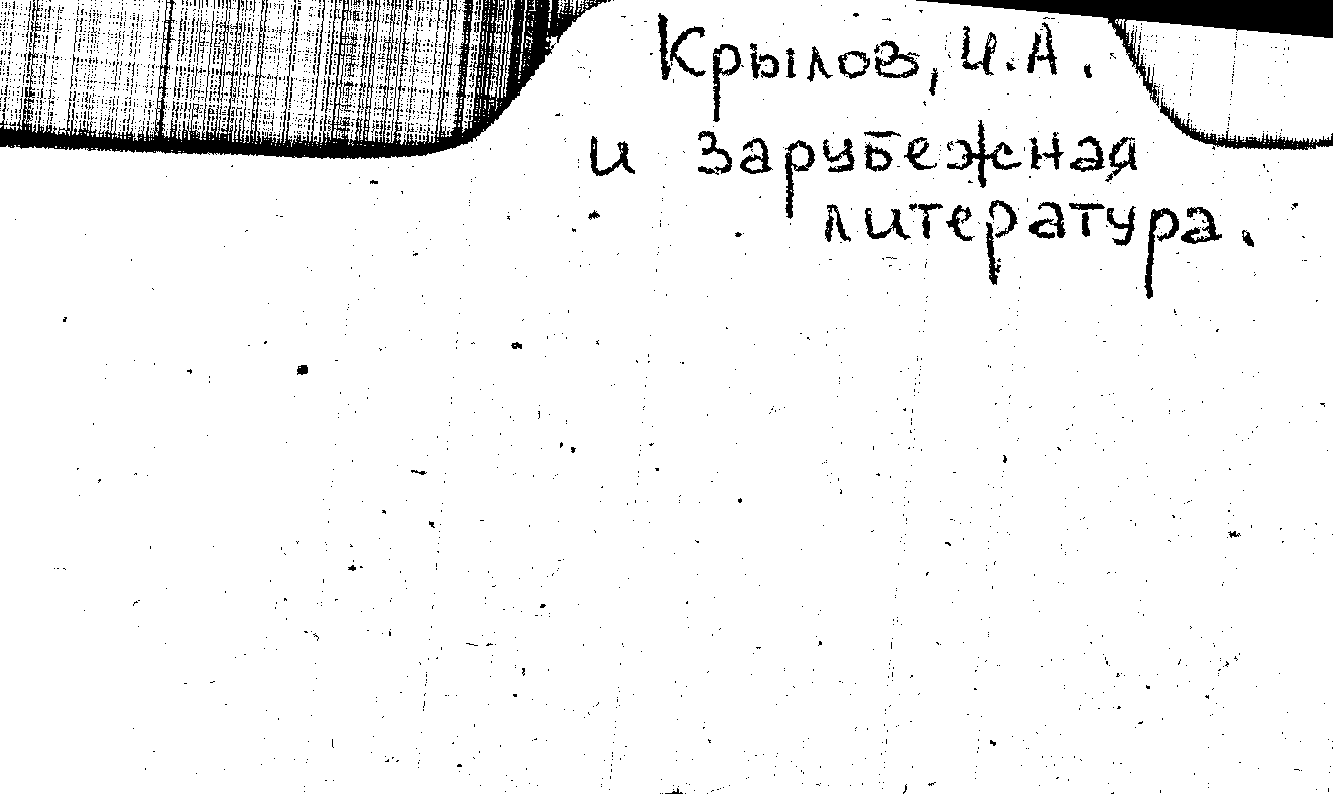 Крылов, И.А.
и зарубежная
литература.